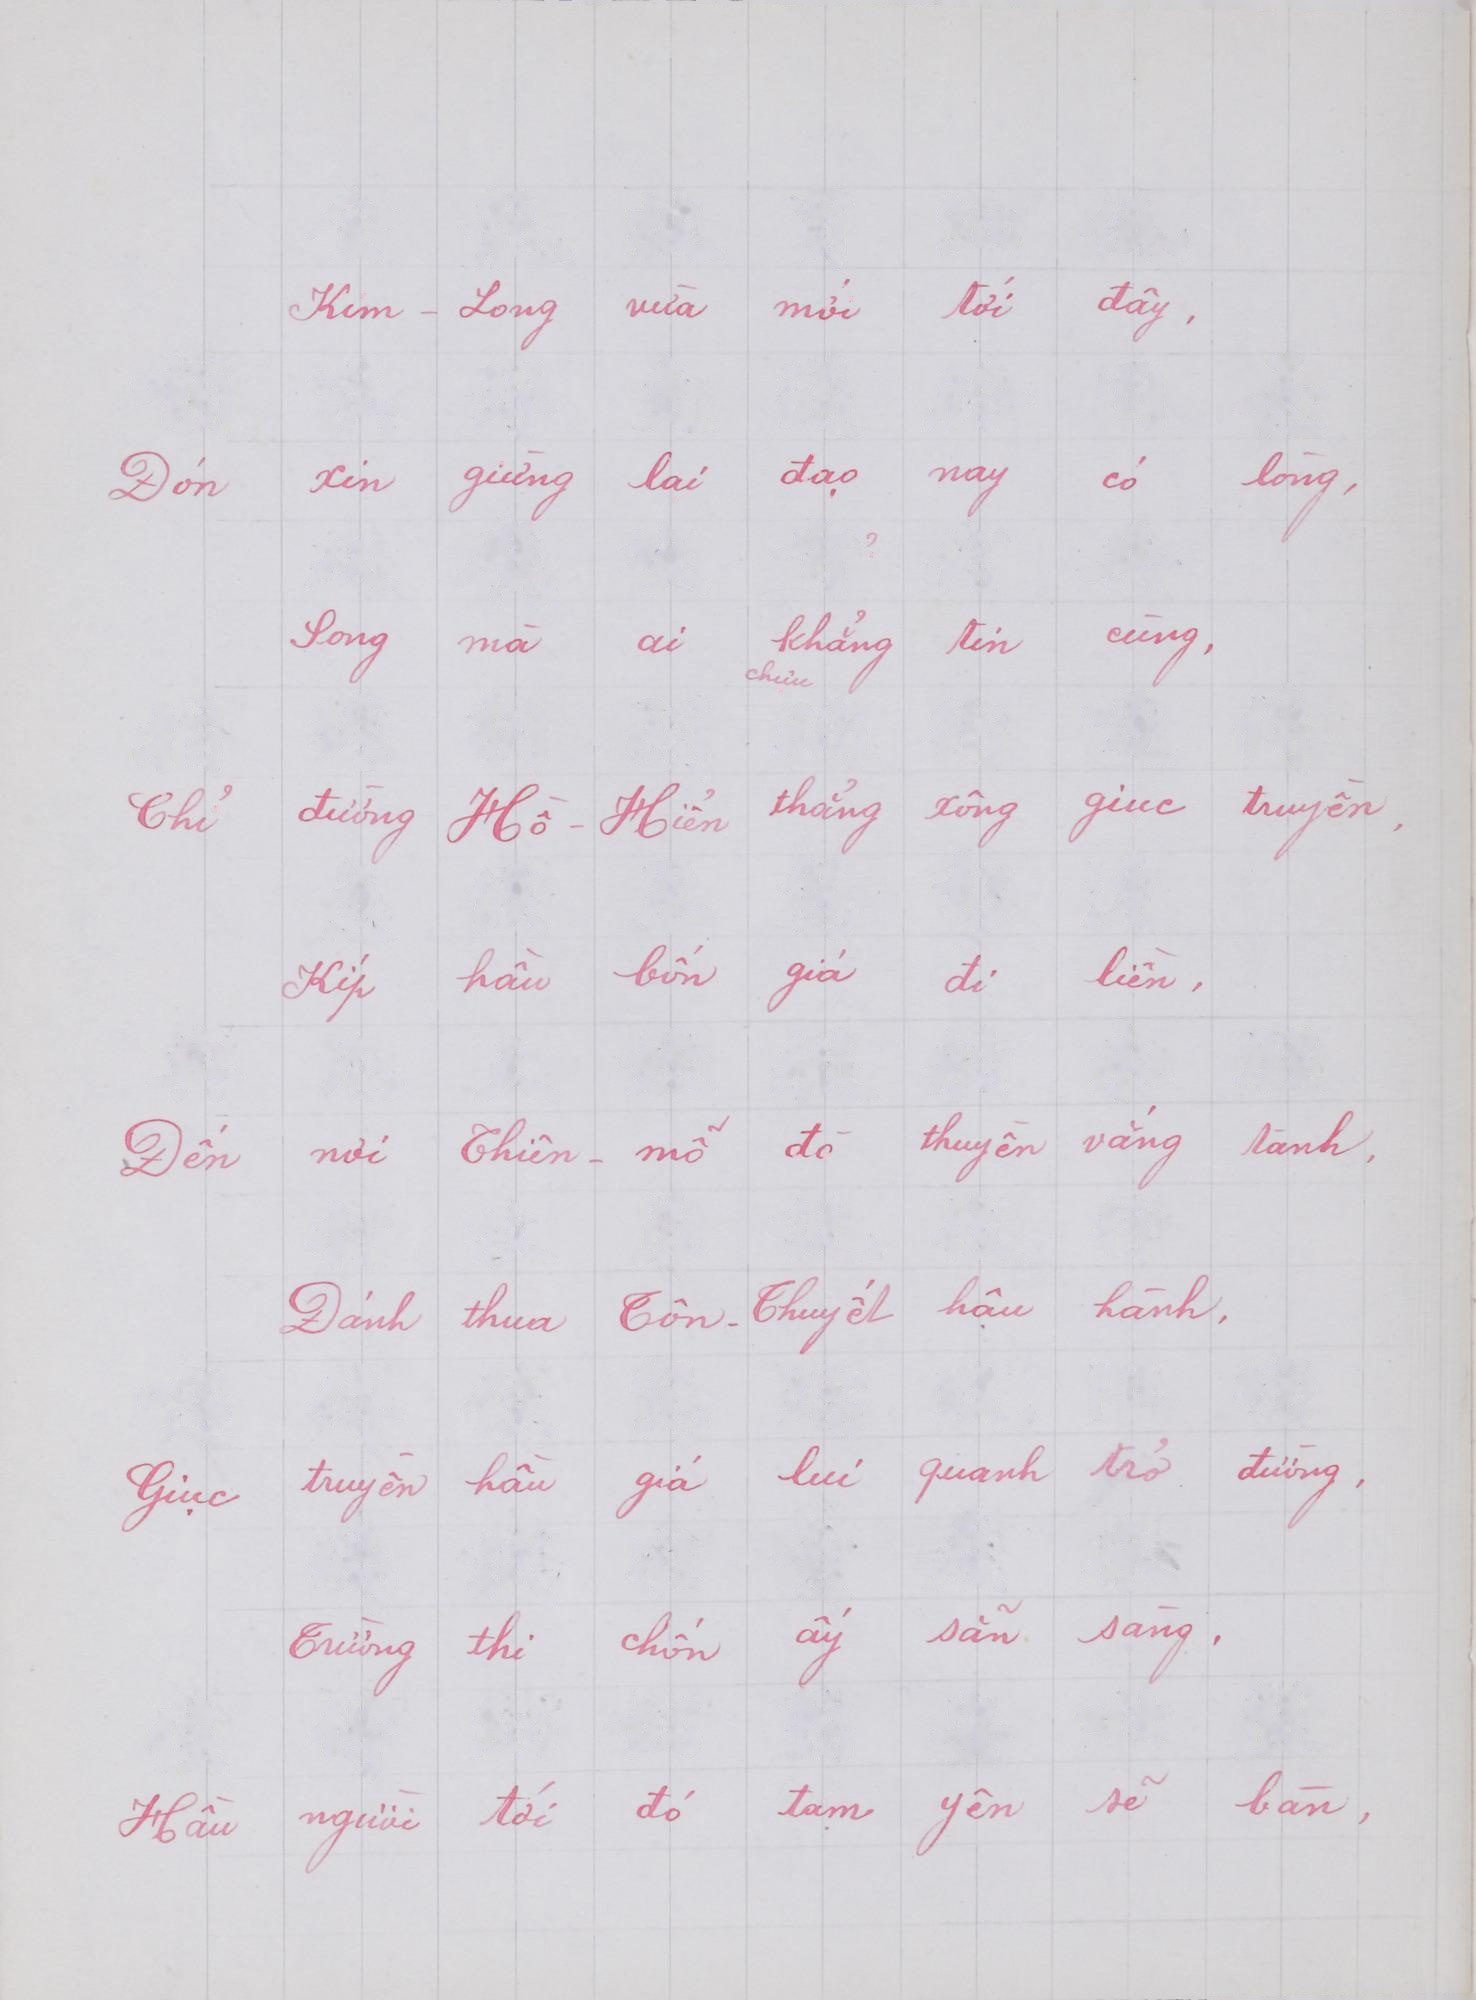 Kim - Long vừa mới tới đây,
Đón xin giừng lai đạo nay có lòng,
?
Song mà ai khẳng tin cùng,
chưu
Chỉ đường Hồ - Hiển thẳng xông giuc truyền,
Kíp hầu bốn giá đi liền,
Đến nơi Thiên - mỗ đò thuyền vắng tanh,
Đánh thua Tôn - Thuyết hậu hành,
Giục truyền hầu giá lui quanh trở đường,
Trường thi chốn ấy sẵn sàng,
Hầu người tới đó tạm yên sẽ bàn,